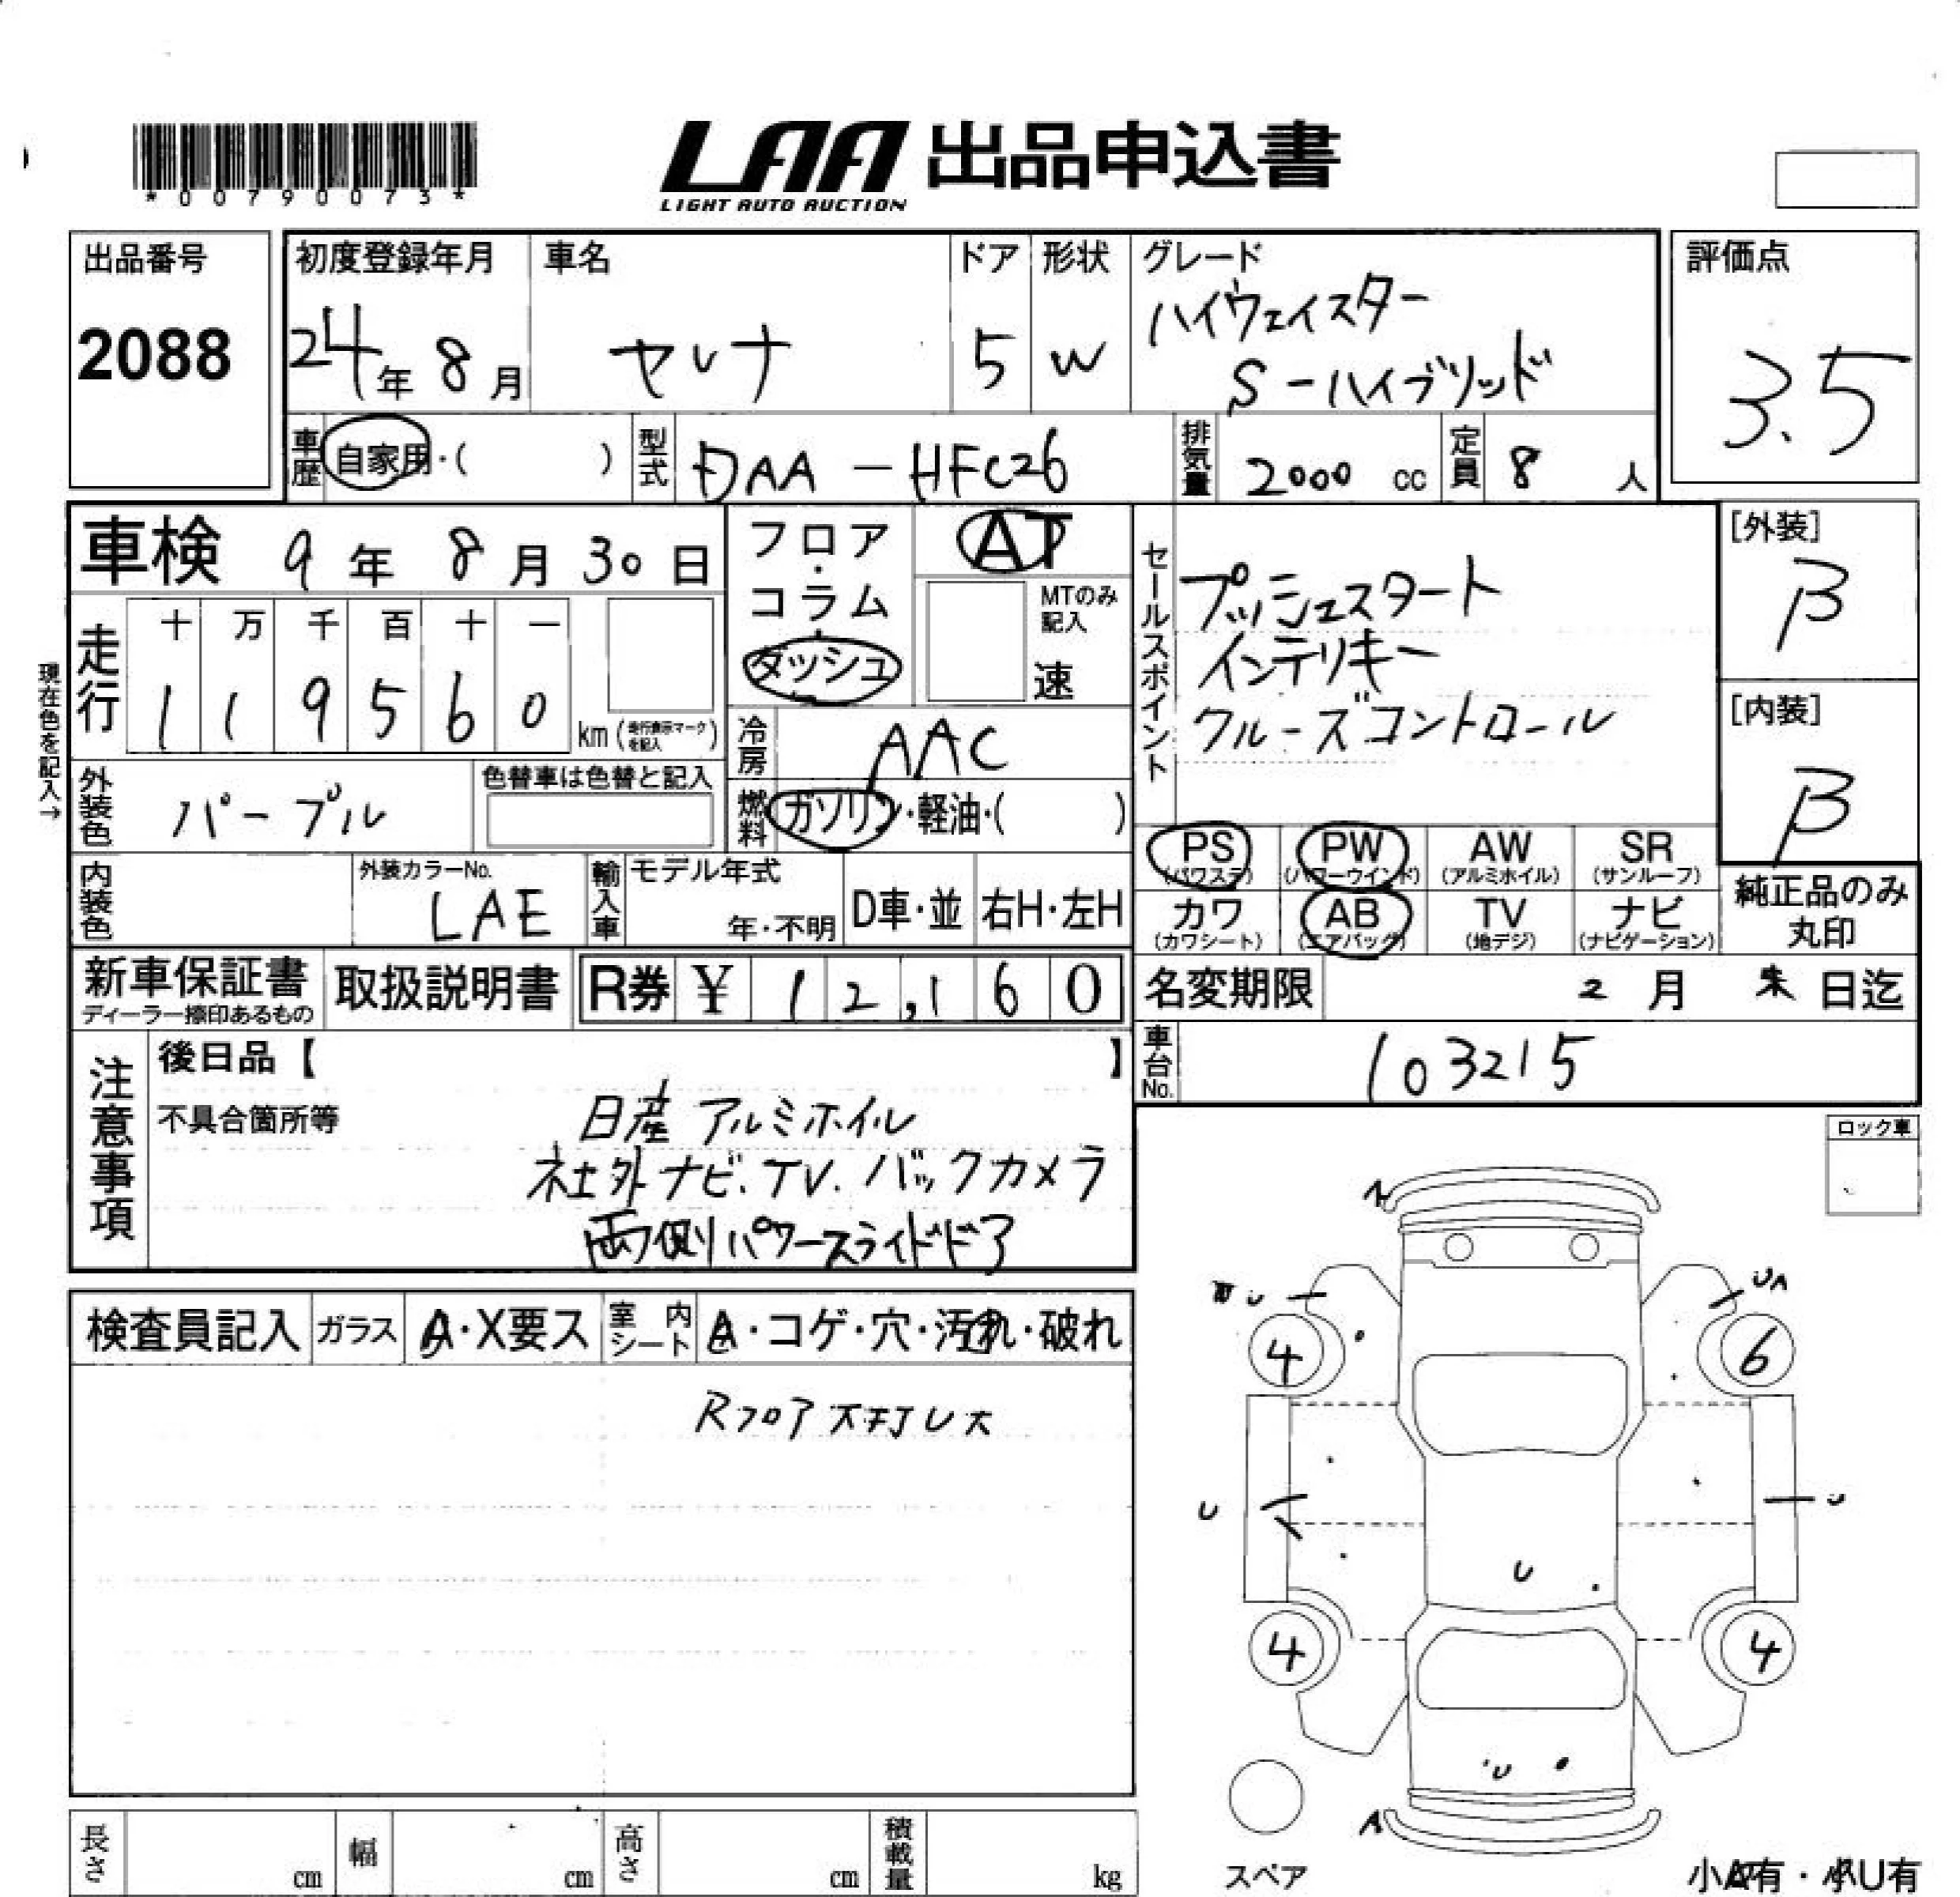 *00790073*
LAA 出品申込書
LIGHT AUTO AUCTION
出品番号
2088
初度登録年月
24年 8月
車名
セレナ
ドア
5
形状
W
グレード
ハイウェイスター
S-ハイブリッド
評価点
3.5
車歴 自家用・( )
型式 DAA-HFC26
排気量 2000 cc
定員 8 人
車検 9年 8月 30日
フロア・コラム・ダッシュ
AT
MTのみ記入
速
セールスポイント
プッシュスタート
インテリキー
クルーズコントロール
[外装]
B
[内装]
B
現在色を記入→
走行 十 万 千 百 十 一
1 1 9 5 6 0 km (走行表示マークを記入)
冷房 AAC
外装色 パープル
色替車は色替と記入
燃料 ガソリン・軽油・( )
PS (パワステ)
PW (パワーウインド)
AW (アルミホイル)
SR (サンルーフ)
カワ (カワシート)
AB (エアバック)
TV (地デジ)
ナビ (ナビゲーション)
純正品のみ丸印
内装色
外装カラーNo.
LAE
輸入車
モデル年式
年・不明
D車・並
右H・左H
新車保証書
ディーラー捺印あるもの
取扱説明書
R券 ¥ 12,160
名変期限 2月 末日迄
車台No. 103215
注意事項
後日品【 】
不具合箇所等
日産 アルミホイル
社外ナビ.TV.バックカメラ
両側パワースライドドア
ロック車
検査員記入
ガラス
A・X要ス
室内シート
A・コゲ・穴・汚れ・破れ
Rフロア
A
U
UA
4
6
U
U
U
4
4
U
A
スペア
長さ cm
幅 cm
高さ cm
積載量 kg
小A有・小U有